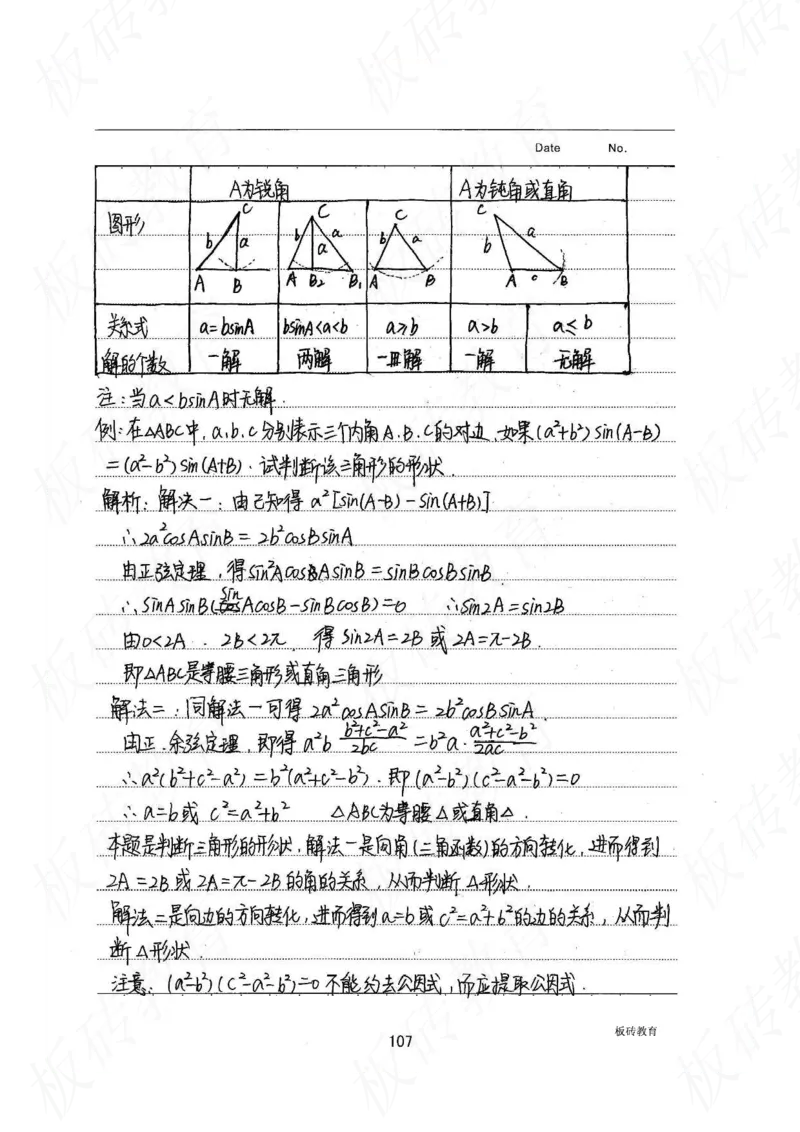 Date No.
A为锐角 A为钝角或直角
图形
C C C C
b a b a a b a b a
A B A B₂ B₁ A B A c B
关系式 a=bsinA bsinA<a<b a≥b a>b a≤b
解的个数 一解 两解 一解 一解 无解
注:当a<bsinA时无解.
例:在△ABC中,a,b,c分别表示三个内角A.B.C的对边,如果(a²+b²)sin(A-B)
=(a²-b²)sin(A+B).试判断该三角形的形状.
解析:解决一:由已知得 a²[sin(A-B)-sin(A+B)]
∴2a²cosAsinB=2b²cosBsinA
由正弦定理,得sin²AcosAsinB=sinBcosBsinB
∴sinAsinB(sinAcosB-sinBcosB)=0 ∴sin2A=sin2B
由0<2A.2B<2π 得 sin2A=2B 或 2A=π-2B.
即△ABC是等腰三角形或直角三角形
解法二:同解法一可得 2a²cosAsinB=2b²cosBsinA
由正.余弦定理,即得 a²b (b²+c²-a²)/2bc =b²a·(a²+c²-b²)/2ac
∴a²(b²+c²-a²)=b²(a²+c²-b²).即(a²-b²)(c²-a²-b²)=0
∴a=b或 c²=a²+b² △ABC为等腰△或直角△.
本题是判断三角形的形状,解法一是向角(三角函数)的方向转化,进而得到
2A=2B或2A=π-2B的角的关系,从而判断△形状.
解法二是向边的方向转化,进而得到a=b或c²=a²+b²的边的关系,从而判
断△形状.
注意:(a²-b²)(c²-a²-b²)=0不能约去公因式,而应提取公因式.
107
板砖教育